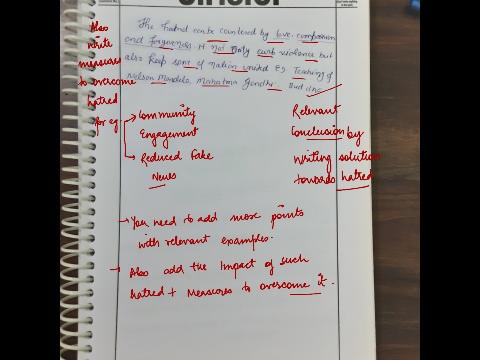 The hatred can be countered by love, compassion
and forgiveness it not only curb violence but
also keep sons of nation united eg Teaching of
Nelson Mandela, Mahatma Gandhi
Also
write
measures
to overcome
hatred
for eg
Community
Engagement
Reduced Fake
News
Relevant
Conclusion by
writing solution
towards hatred
You need to add more points
with relevant examples.
Also add the Impact of such
hatred + Measures to overcome it.